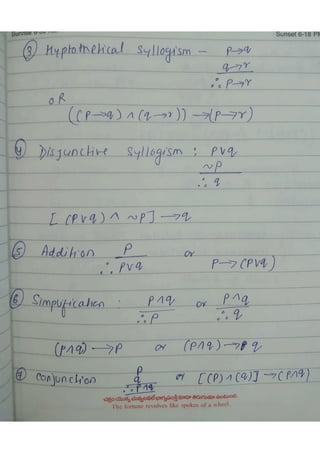 Sunrise 6-0
Sunset 6-18 P
③ Hyptothetical Syllogism – P→q
q→r
∴ P→r
OR
((P→q) ∧ (q→r)) → (P→r)
④ Disjunctive Syllogism : P∨q
~P
∴ q
[ (P∨q) ∧ ~P] → q
⑤ Addition P or P→(P∨q)
∴ P∨q
⑥ Simplification : P∧q or P∧q
∴ P ∴ q
(P∧q) → P or (P∧q) → q
⑦ Conjunction P or [(P) ∧ (q)] → (P∧q)
q
∴ P∧q
The fortune revolves like spokes of a wheel.